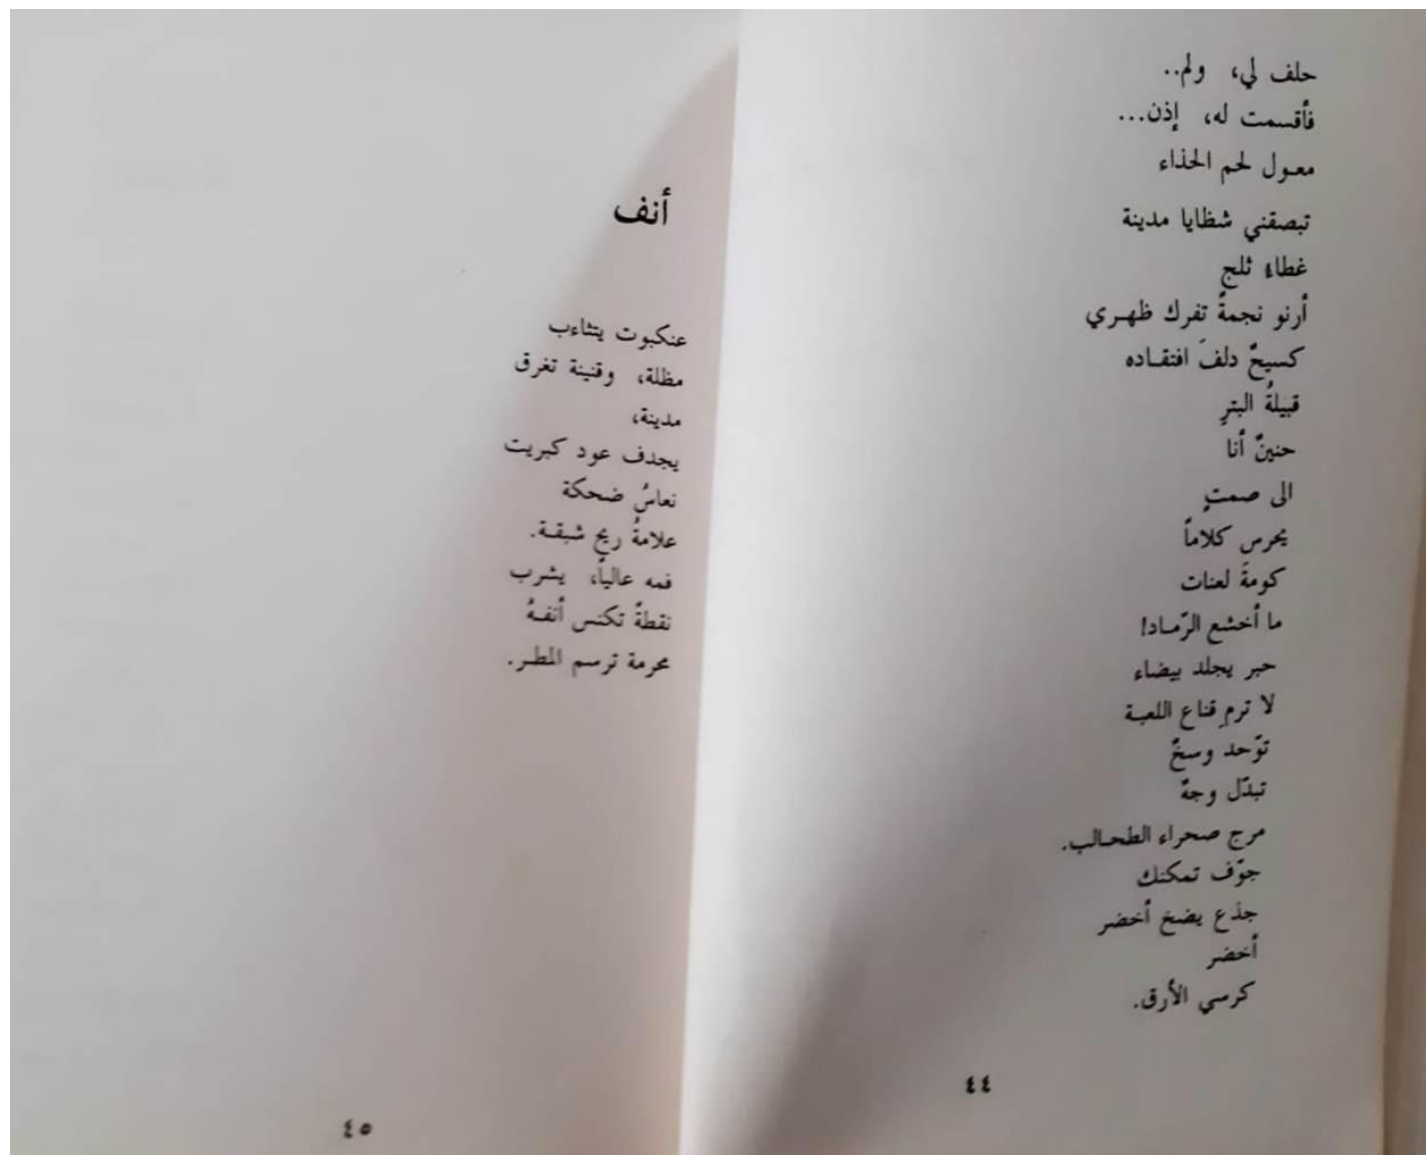 حلف لي، ولم..
فأقسمت له، إذن...
معول لحم الحذاء
تبصقني شظايا مدينة
غطاءُ ثلج
أرنو نجمةً تفرك ظهري
كسيحٌ دلفَ افتقاده
قبيلةُ البترِ
حنينٌ أنا
الى صمتٍ
يحرس كلاماً
كومةَ لعنات
ما أخشع الرّماد!
حبر يجلد بيضاء
لا ترمِ قناع اللعبة
توّحد وسخٌ
تبدّل وجهٌ
مرج صحراء الطحالب.
جوّف تمكنك
جذع يضخ أخضر
أخضر
كرسي الأرق.
٤٤
أنف
عنكبوت يتثاءب
مظلة، وقنينة تغرق
مدينة،
يجدف عود كبريت
نعاسُ ضحكة
علامةُ ريحٍ شبقة.
فمه عالياً، يشرب
نقطةً تكنس أنفهُ
محرمة ترسم المطر.
٤٥